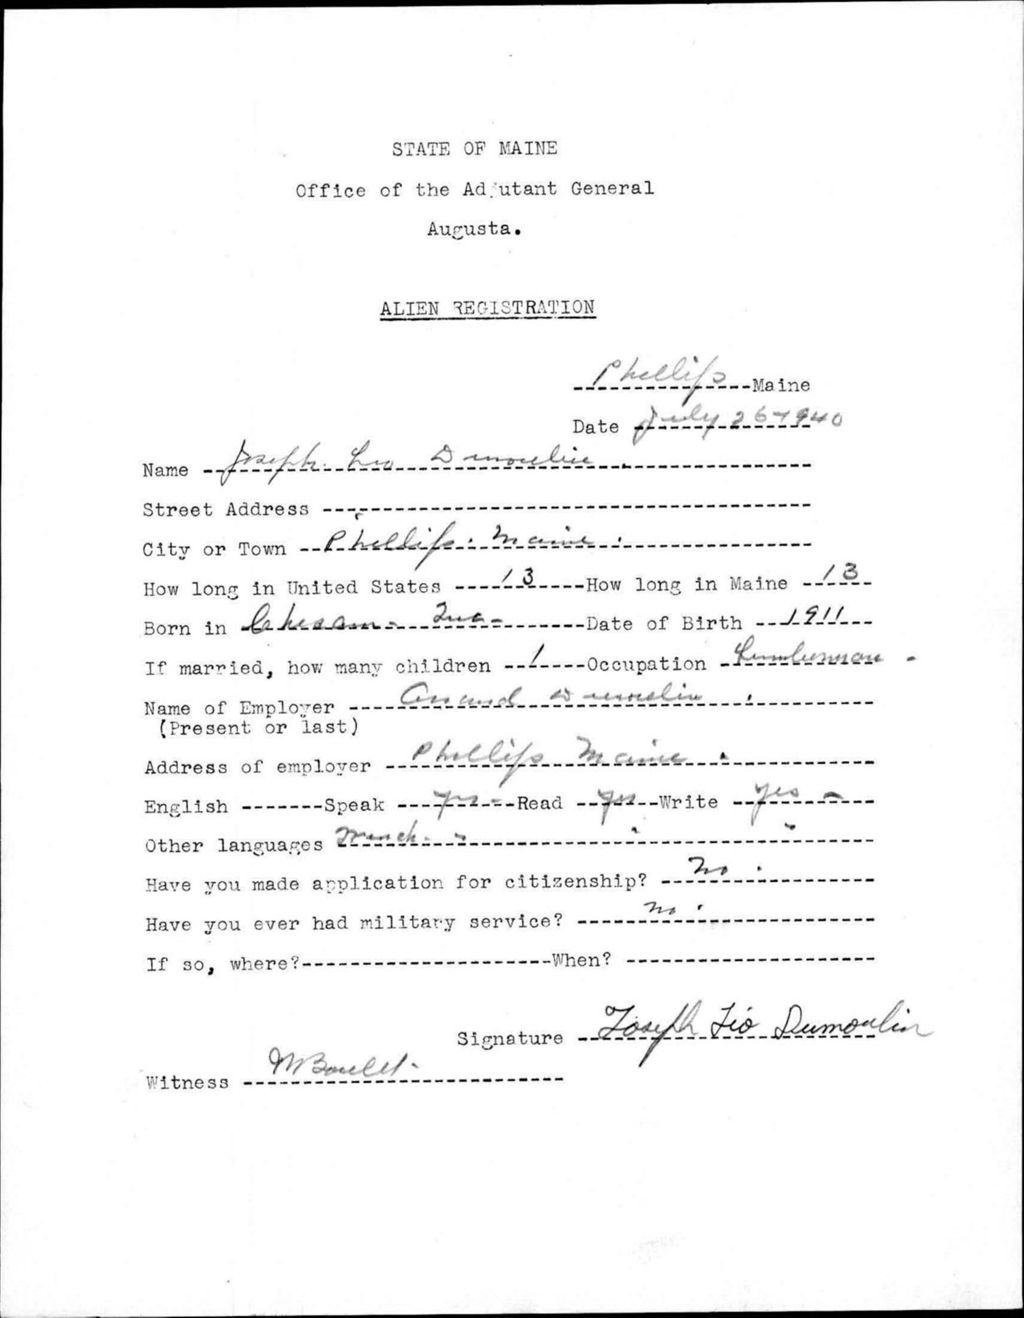 STATE OF MAINE
Office of the Adjutant General
Augusta.
ALIEN REGISTRATION
Phillips Maine
Date July 26-1940
Name Joseph. Leo Dumoulin
Street Address
City or Town Phillips. Maine.
How long in United States 13 How long in Maine 13
Born in Chesam - Que - Date of Birth 1911
If married, how many children 1 Occupation Lumberman -
Name of Employer Armand Dumoulin.
(Present or last)
Address of employer Phillips Maine.
English Speak yes - Read yes Write yes -
Other languages French.
Have you made application for citizenship? No.
Have you ever had military service? No.
If so, where? When?
Signature Joseph Lio Dumoulin
Witness M Boulet.